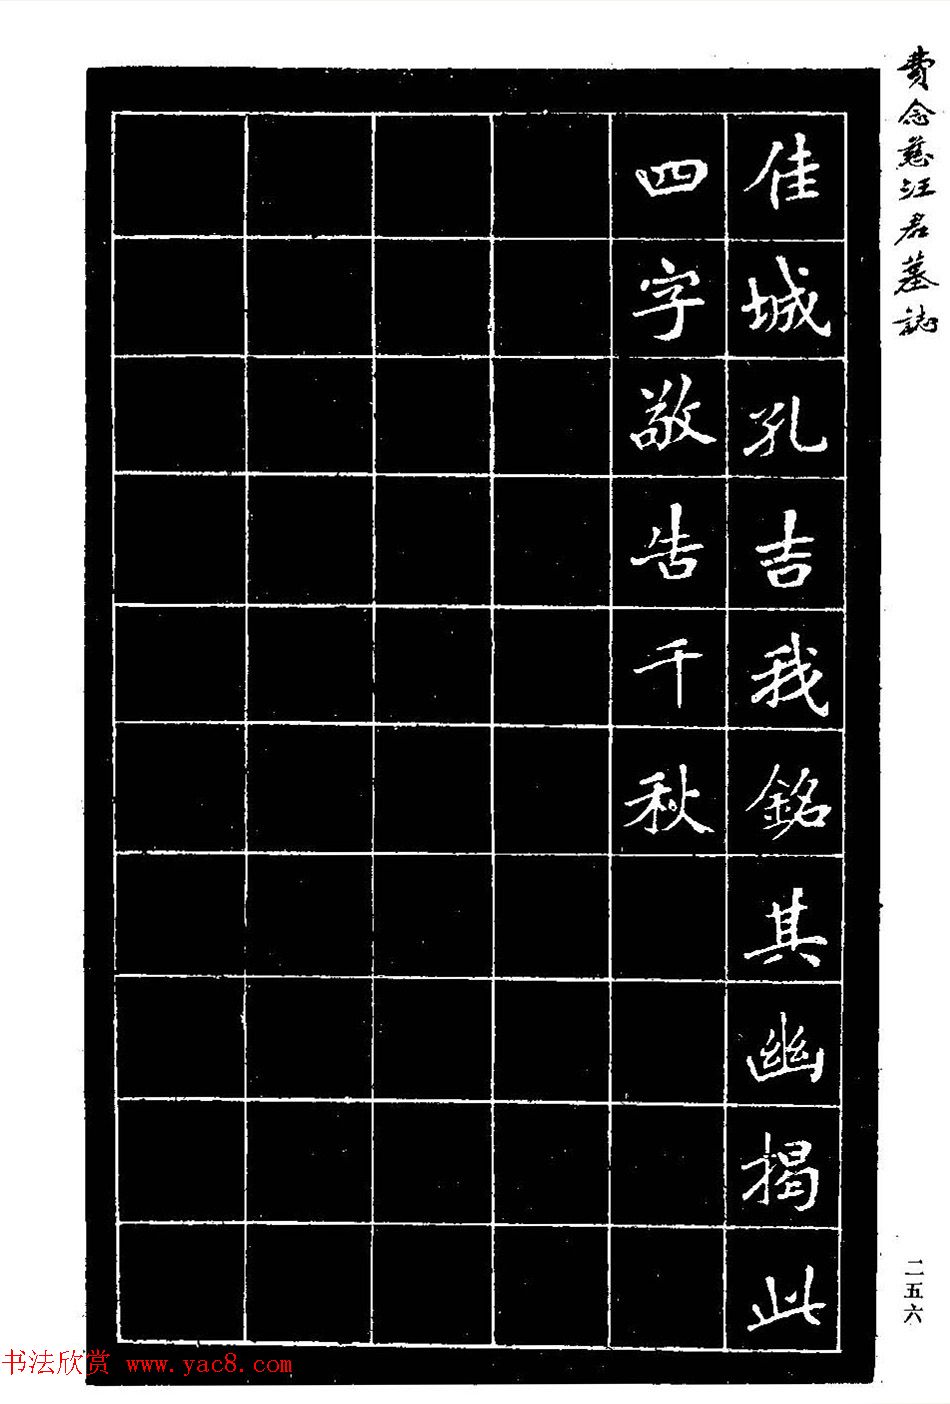 費念慈汪君墓誌
佳城孔吉我銘其幽揭此
四字敬告千秋
二五六
书法欣赏 www.yac8.com